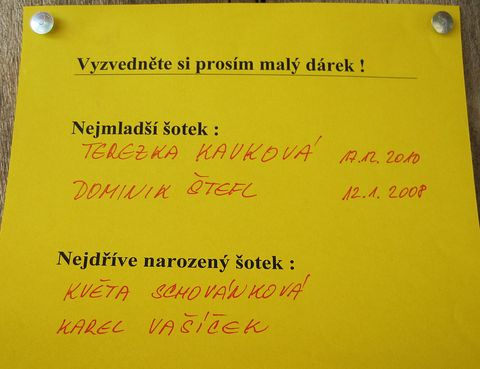 Vyzvedněte si prosím malý dárek !
Nejmladší šotek :
TEREZKA KAVKOVÁ 17.12. 2010
DOMINIK ŠTEFL 12.1. 2008
Nejdříve narozený šotek :
KVĚTA SCHOVÁNKOVÁ
KAREL VAŠÍČEK